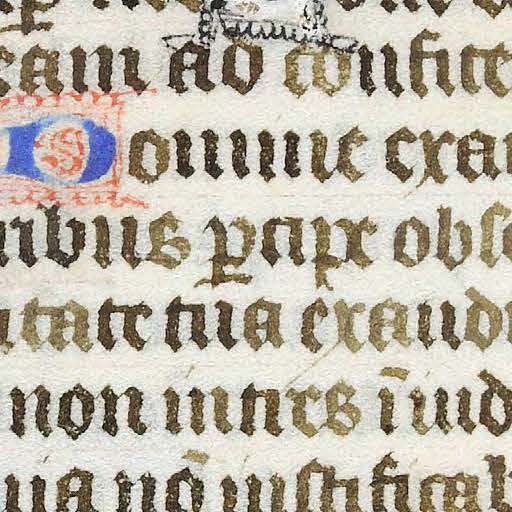 eam ad confite
Domine exau
ribus ꝑcipe obse
itate tua exaudi
non intres ī iud
uia nō iustificab